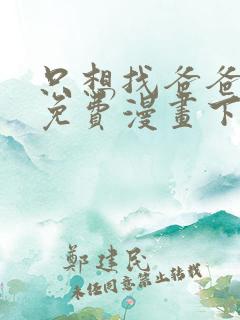 只想找爸爸
免費漫畫下
鄭建民
未任同意禁止转载